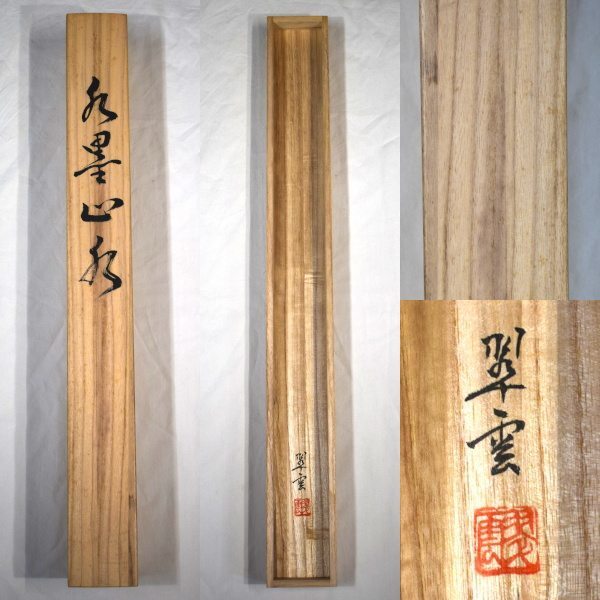 水墨山水
翠雲
翠雲